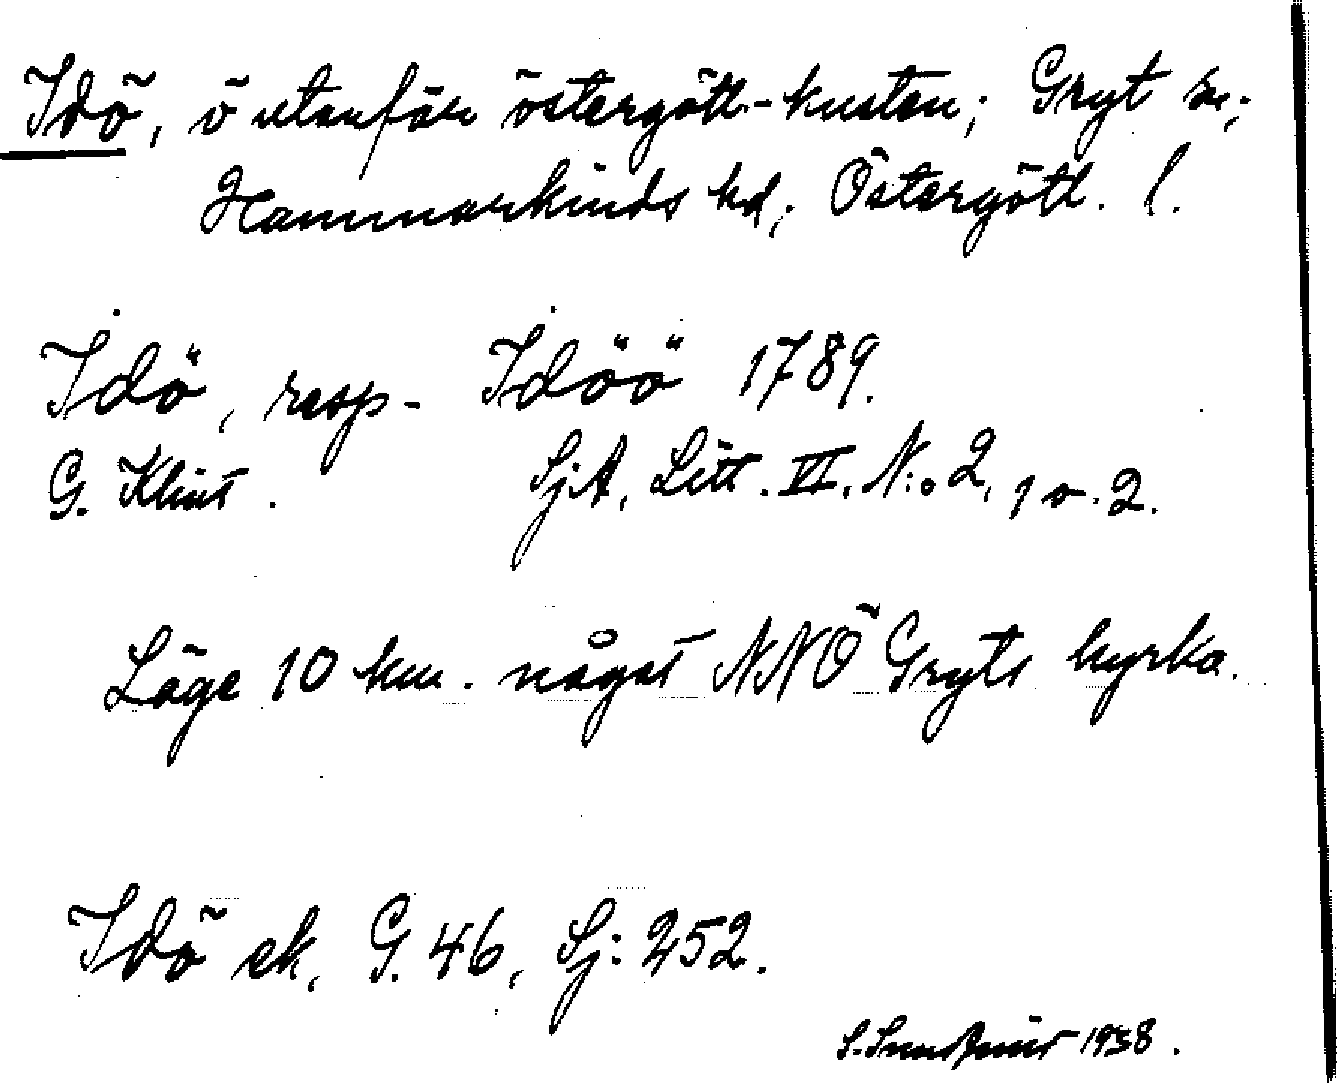 Idö, ö utanför östergötl.-kusten; Gryt sn;
Hammarkinds hd; Östergötl. l.
Idö, resp. Idöö 1789.
G. Klint. SjA, Litt. VI, N:o 2, 1 o. 2.
Läge 10 km. något NNÖ Gryts kyrka.
Idö ek, G. 46, Sj: 252.
1938.